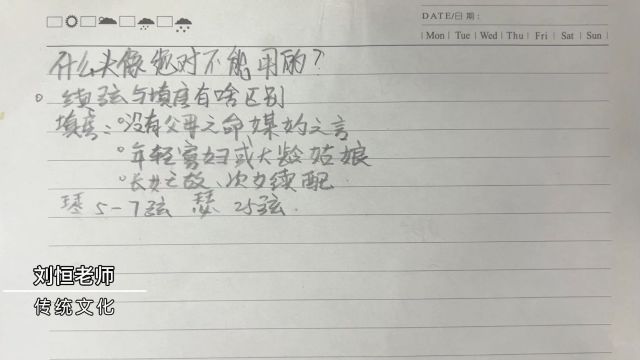 DATE/日期:
Mon Tue Wed Thu Fri Sat Sun
什么头像绝对不能用的?
。续弦与填房有啥区别
填房:°没有父母之命媒妁之言
°年轻寡妇或大龄姑娘
°长女亡故、次女续配.
琴5-7弦 瑟 25弦.
刘恒老师
传统文化